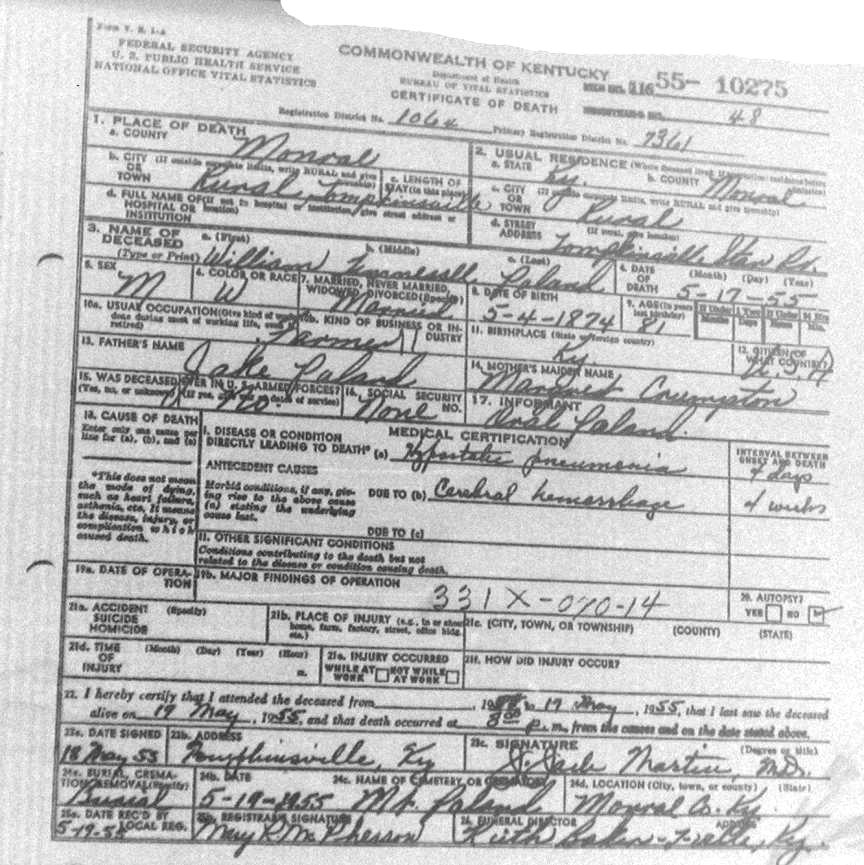 Form V. S. 1-A
FEDERAL SECURITY AGENCY
U. S. PUBLIC HEALTH SERVICE
NATIONAL OFFICE VITAL STATISTICS
COMMONWEALTH OF KENTUCKY
Department of Health
BUREAU OF VITAL STATISTICS
CERTIFICATE OF DEATH
FILE NO. 116 55- 10275
REGISTRAR'S NO. 48
Registration District No. 1062 Primary Registration District No. 7361
1. PLACE OF DEATH
a. COUNTY Monroe
b. CITY (If outside corporate limits, write RURAL and give township)
OR
TOWN Rural Tompkinsville
c. LENGTH OF STAY (in this place)
d. FULL NAME OF (If not in hospital or institution, give street address or location)
HOSPITAL OR
INSTITUTION
2. USUAL RESIDENCE (Where deceased lived. If institution: residence before admission)
a. STATE Ky. b. COUNTY Monroe
c. CITY (If outside corporate limits, write RURAL and give township)
OR
TOWN Rural
d. STREET (If rural, give location)
ADDRESS Tompkinsville Star Rt.
3. NAME OF DECEASED
(Type or Print)
a. (First) William b. (Middle) c. (Last)
4. DATE OF DEATH (Month) (Day) (Year)
5-17-55
5. SEX M
6. COLOR OR RACE W
7. MARRIED, NEVER MARRIED, WIDOWED, DIVORCED (Specify) Married
8. DATE OF BIRTH 5-4-1874
9. AGE (In years last birthday) 81
If Under 1 Year Months Days
If Under 24 Hrs Hours Min.
10a. USUAL OCCUPATION (Give kind of work done during most of working life, even if retired) Farmer
10b. KIND OF BUSINESS OR INDUSTRY
11. BIRTHPLACE (State or foreign country) Ky.
12. CITIZEN OF WHAT COUNTRY? U.S.A
13. FATHER'S NAME
Jake
14. MOTHER'S MAIDEN NAME
Margaret Crumpton
15. WAS DECEASED EVER IN U. S. ARMED FORCES?
(Yes, no, or unknown) (If yes, give war or dates of service)
No.
16. SOCIAL SECURITY NO. None
17. INFORMANT
18. CAUSE OF DEATH
Enter only one cause per line for (a), (b), and (c)
*This does not mean the mode of dying, such as heart failure, asthenia, etc. It means the disease, injury, or complication which caused death.
MEDICAL CERTIFICATION
INTERVAL BETWEEN ONSET AND DEATH
I. DISEASE OR CONDITION
DIRECTLY LEADING TO DEATH* (a) Hypostatic pneumonia days
ANTECEDENT CAUSES
Morbid conditions, if any, giving rise to the above cause (a) stating the underlying cause last.
DUE TO (b) Cerebral hemorrhage 4 weeks
DUE TO (c)
II. OTHER SIGNIFICANT CONDITIONS
Conditions contributing to the death but not
related to the disease or condition causing death.
19a. DATE OF OPERATION
19b. MAJOR FINDINGS OF OPERATION
331X-070-14
20. AUTOPSY?
YES NO
21a. ACCIDENT (Specify)
SUICIDE
HOMICIDE
21b. PLACE OF INJURY (e.g., in or about home, farm, factory, street, office bldg. etc.)
21c. (CITY, TOWN, OR TOWNSHIP) (COUNTY) (STATE)
21d. TIME (Month) (Day) (Year) (Hour)
OF
INJURY m.
21e. INJURY OCCURRED
WHILE AT WORK NOT WHILE AT WORK
21f. HOW DID INJURY OCCUR?
22. I hereby certify that I attended the deceased from , 19 to 17 May, 1955, that I last saw the deceased
alive on 17 May, 1955, and that death occurred at p.m., from the causes and on the date stated above.
23a. DATE SIGNED
18 May 55
23b. ADDRESS
Tompkinsville, Ky
23c. SIGNATURE (Degree or title)
J. Jack Martin, M.D.
24a. BURIAL, CREMATION, REMOVAL (Specify)
Burial
24b. DATE
5-19-1955
24c. NAME OF CEMETERY OR CREMATORY
24d. LOCATION (City, town, or county) (State)
Monroe Co. Ky.
25a. DATE REC'D BY LOCAL REG.
5-19-55
25b. REGISTRAR'S SIGNATURE
Mary R McPherson
26. FUNERAL DIRECTOR ADDRESS
Ky.